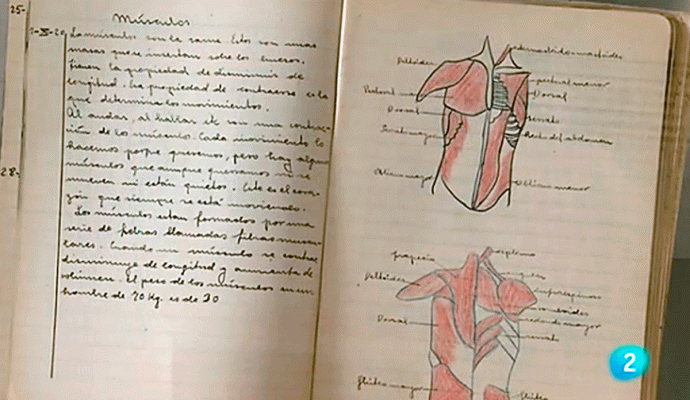 25-
Músculos
Los músculos son la carne. Estos son unas
masas que se insertan sobre los huesos.
tienen la propiedad de disminuir de
longitud. La propiedad de contraerse es la
que determina los movimientos.
Al andar, al hablar etc son una contrac-
ción de los músculos. Cada movimiento lo
hacemos porque queremos, pero hay algunos
músculos que aunque queramos ni se
mueven ni están quietos. Este es el cora-
zón que siempre se está moviendo.
28-
Los músculos estan formados por una
serie de fibras llamadas fibras muscu-
lares. Cuando un músculo se contrae
disminuye de longitud y aumenta de
volumen. El peso de los músculos en un
hombre de 70 Kg. es de 30
Deltoides
Pectoral
Dorsal
Serrato mayor
Oblicuo mayor
pectoral menor
Dorsal
serrato
Recto del abdomen
Oblicuo menor
trapecio
Deltoides
Dorsal
Glúteo mayor
esplenio
angular
infraespinoso
romboides
redondo mayor
serrato
Glúteo
2